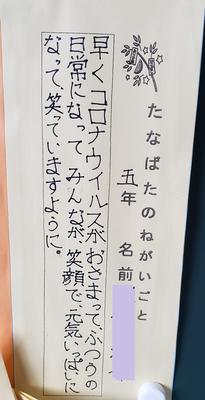 たなばたのねがいごと
五年 名前
早くコロナウイルスがおさまって、ふつうの
日常になってみんなが、笑顔で、元気いっぱいに
なって、笑っていますように。